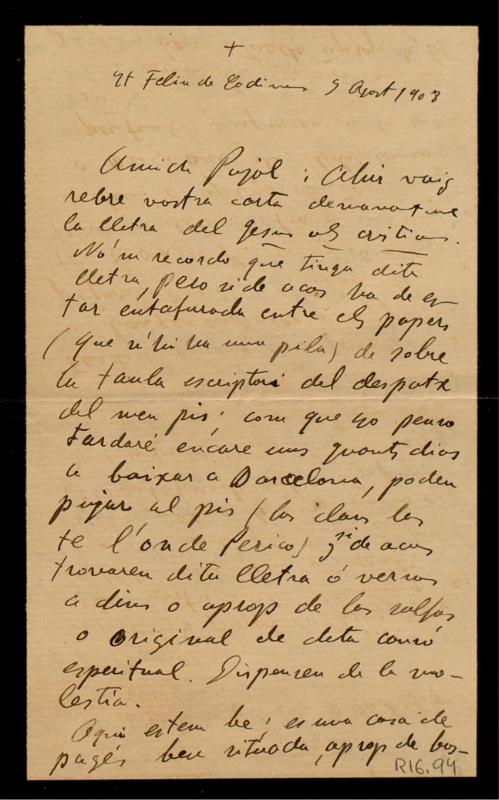 +
St Feliu de Codines 9 Agost 1908
Amich Pujol: Ahir vaig
rebre vostra carta demanantme
la lletra del Jesus als cristians.
No'm recordo que tinga dita
lletra, pero si de acas ha de es-
tar entafurada entre els papers
(que n'hi ha una pila) de sobre
la taula escriptori del despatx
del meu pis; com que jo penso
tardaré encare uns quants dias
a baixar a Barcelona, poden
pujar al pis (las claus las
te l'oncle Perico) y si de acas
trovaren dita lletra ó versos
a dins o aprop de las solfas
o original de deta cansó
espiritual. Dispensen de la mo-
lestia.
Aqui estem be; es una casa de
pagés ben situada, aprop de bos-
R16.94